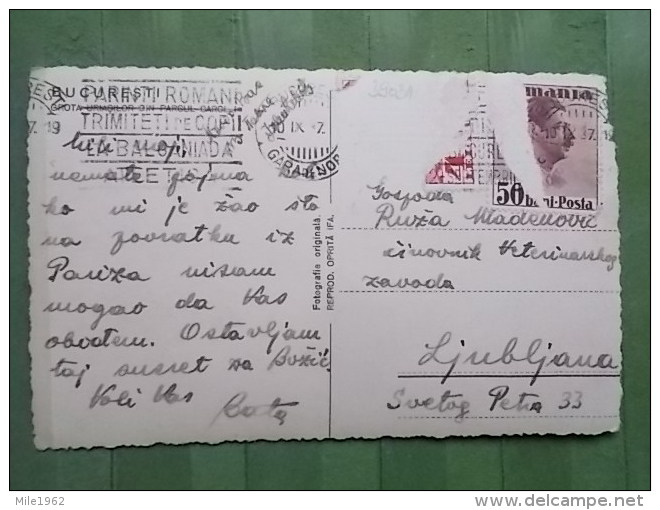 BUCUREȘTI
GROTA URIAȘILOR DIN PARCUL CAROL
PARINTI ROMANI
TRIMITETI DE COPII
LA BALCANIADA
GARA DE NORD
IX
Mili moji,
nemate pojma
ko mi je žao što
na povratku iz
Pariza nisam
mogao da Vas
obiđem. Ostavljam
taj susret za Božić.
Voli Vas
Fotografia originala.
REPROD. OPRITĂ IFA.
mania
50 bani-Posta
Gospođa
Ruža Mladenović
činovnik Veterinarskog
zavoda
Ljubljana
Svetog Petra 33
Mile1962
delcampe.net